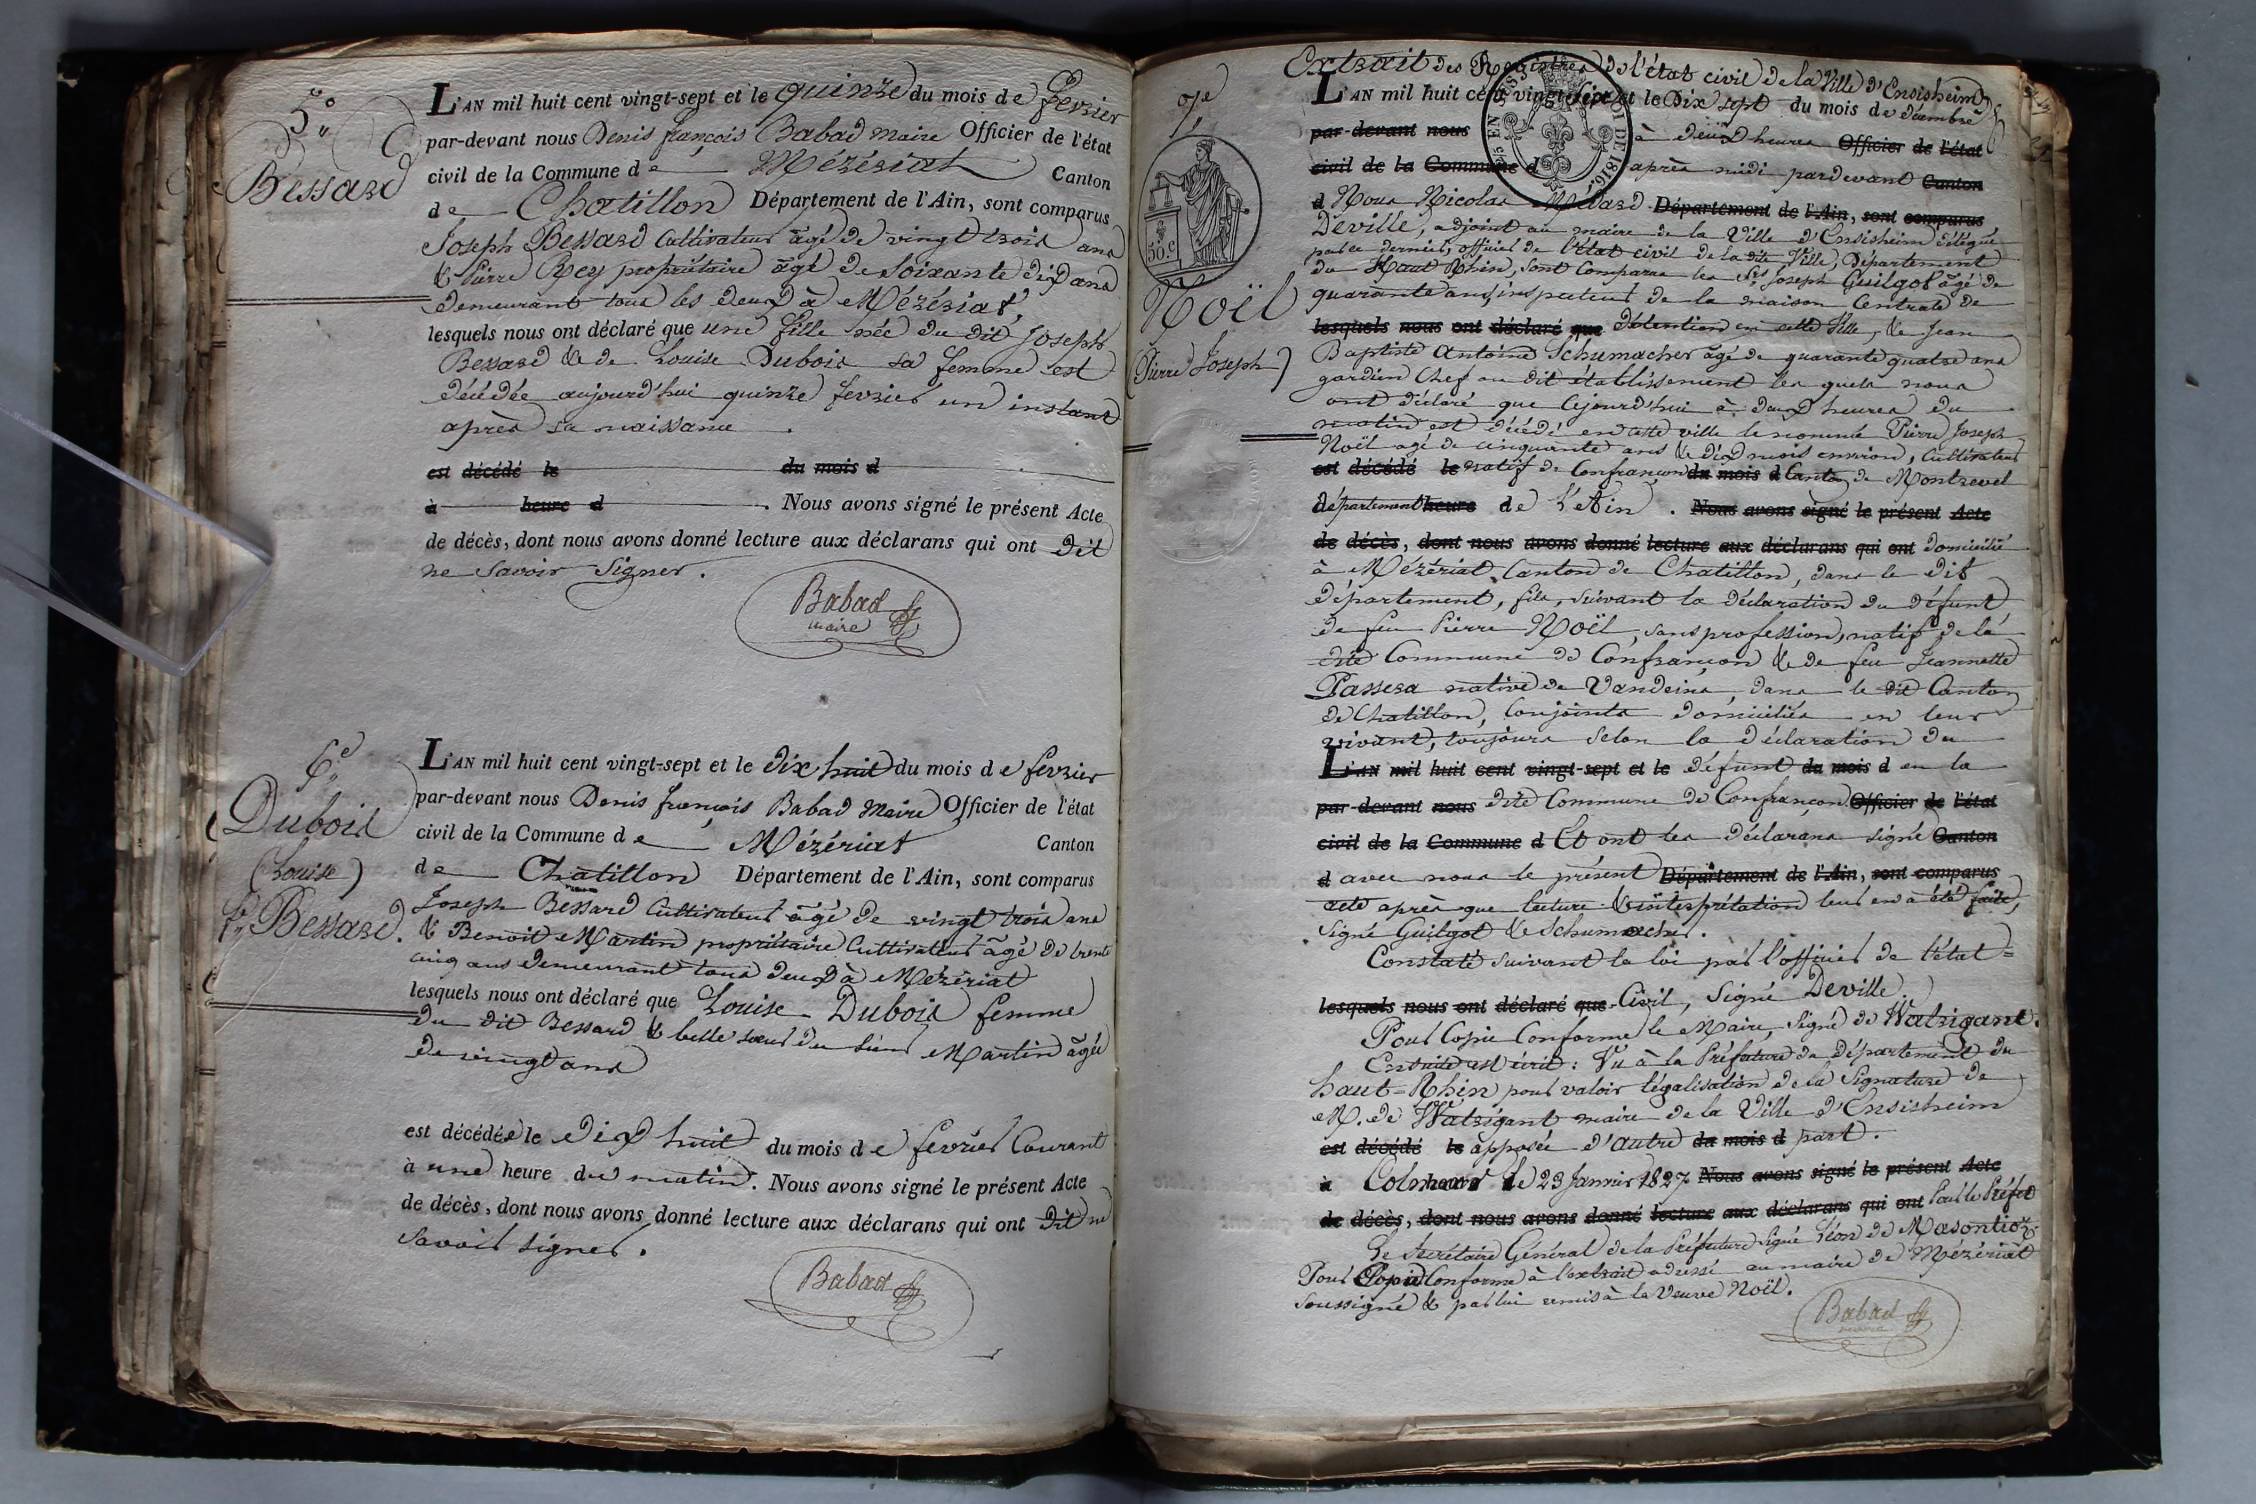 5e
Bessard
L'AN mil huit cent vingt-sept et le quinze du mois de fevrier
par-devant nous Denis françois Babad maire Officier de l'état
civil de la Commune de Mézériat Canton
de Chatillon Département de l'Ain, sont comparus
Joseph Bessard Cultivateur âgé de vingt trois ans
& Pierre Rey propriétaire âgé de Soixante dix ans
demeurant tous les deux à Mézériat,
lesquels nous ont déclaré que une fille née du dit Joseph
Bessard & de Louise Dubois sa femme est
décédée aujourd'hui quinze fevrier un instant
après sa naissance.
est décédé le du mois d
à heure d . Nous avons signé le présent Acte
de décès, dont nous avons donné lecture aux déclarans qui ont dit
ne Savoir Signer.
Babad
maire
6e
Dubois
(Louise)
fe Bessard.
L'AN mil huit cent vingt-sept et le dix huit du mois de fevrier
par-devant nous Denis françois Babad Maire Officier de l'état
civil de la Commune de Mézériat Canton
de Chatillon Département de l'Ain, sont comparus
Joseph Bessard Cultivateur âgé de vingt trois ans
& Benoit Martin propriétaire Cultivateur âgé de trente
cinq ans demeurant tous deux à Mézériat
lesquels nous ont déclaré que Louise Dubois femme
du dit Bessard & belle soeur du Sieur Martin âgée
de vingt ans
est décédée le dix huit du mois de fevrier Courant
à une heure du matin. Nous avons signé le présent Acte
de décès, dont nous avons donné lecture aux déclarans qui ont dit ne
Savoir Signer.
Babad
7e
50.c
Noël
(Pierre Joseph)
Extrait des Registres de l'état civil de la Ville d'Ensisheim
L'AN mil huit cent vingt-sept et le Dix sept du mois de décembre
par-devant nous à deux heures Officier de l'état
civil de la Commune d après midi pardevant Canton
d Nous Nicolas Médard Département de l'Ain, sont comparus
Deville, adjoint au maire de la Ville d'Ensisheim délégué
par ce dernier, officier de l'état civil de la dite Ville, Département
du Haut Rhin, sont Comparus les Srs Joseph Guilgot âgé de
quarante ans, inspecteur de la maison Centrale de
lesquels nous ont déclaré que Détention en cette Ville, & Jean
Baptiste Antoine Schumacher âgé de quarante quatre ans
gardien Chef au dit établissement les quels nous
ont déclaré que Cejourd'hui à deux heures du
matin est décédé en cette ville le nommé Pierre Joseph
Noël agé de cinquante ans & dix mois environ, Cultivateur
est décédé le natif de Confrançon du mois d Canton de Montrevel
département heure de L'Ain. Nous avons signé le présent Acte
de décès, dont nous avons donné lecture aux déclarans qui ont domicilié
à Mézériat Canton de Chatillon, dans le dit
département, fils, suivant la déclaration du défunt
de feu Pierre Noël, sans profession, natif de la
dite Commune de Confrançon & de feu Jeannette
Passera native de Vandeins, dans le dit Canton
de Chatillon, Conjoints domiciliés en leur
vivant, toujours selon la déclaration du
L'AN mil huit cent vingt-sept et le défunt du mois d en la
par-devant nous dite Commune de Confrançon Officier de l'état
civil de la Commune d Et ont les déclarans signé Canton
d avec nous le présent Département de l'Ain, sont comparus
acte après que lecture & interprétation leur en a été faite,
Signé Guilgot & Schumacher.
Constaté suivant la loi par l'officier de l'état=
lesquels nous ont déclaré que Civil, Signé Deville.
Pour Copie Conforme le Maire, Signé de Watrigant.
Ensuite est écrit: Vu à la Préfecture du Département du
haut=Rhin pour valoir légalisation de la Signature de
M. de Watrigant maire de la Ville d'Ensisheim
est décédé le apposée d'autre du mois d part.
à Colmar le 23 Janvier 1827 Nous avons signé le présent Acte
de décès, dont nous avons donné lecture aux déclarans qui ont Pour le Préfet
Le Secrétaire Général de la Préfecture Signé Léon de
Pour Copie Conforme à l'extrait adressé au maire de Mézériat
Soussigné & par lui remis à la Veuve Noël.
Babad
maire